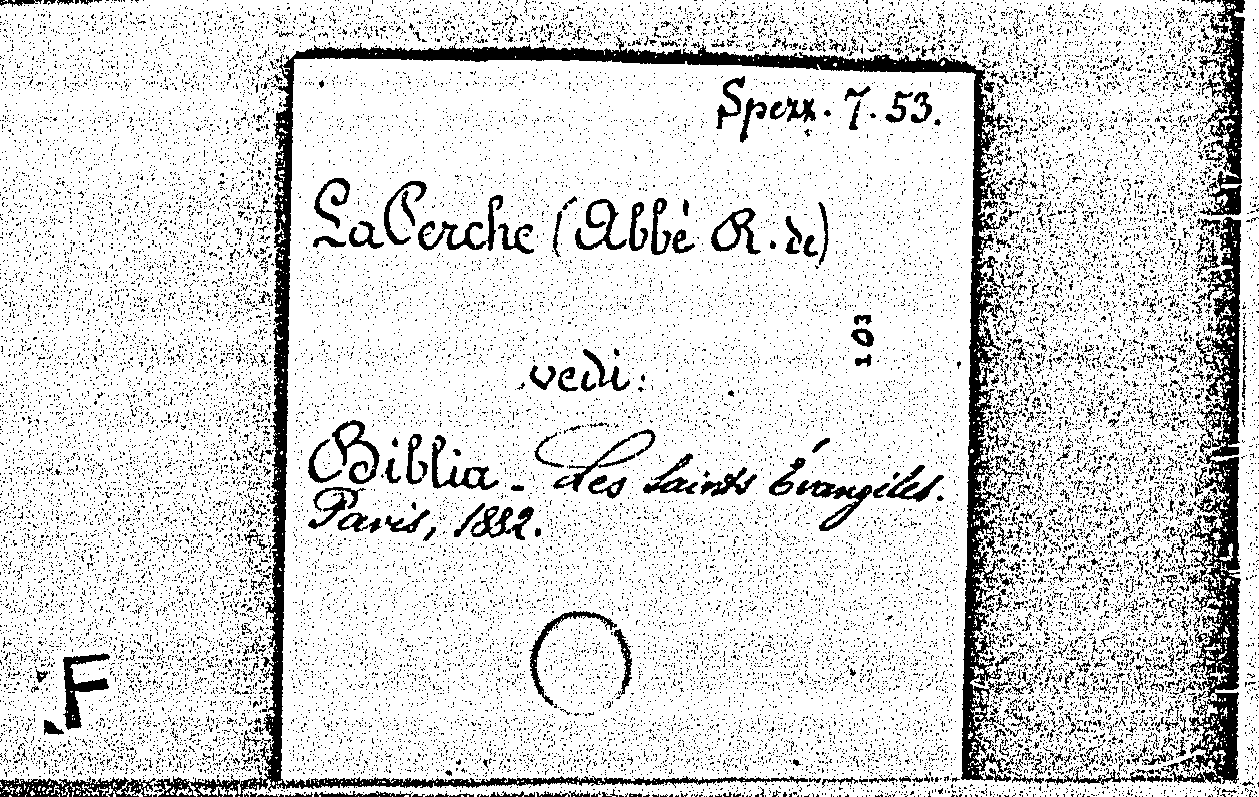 Spezz. 7.53.
La Perche (Abbé R. de)
103
vedi:
Biblia - Les Saints Évangiles.
Paris, 1882.
F